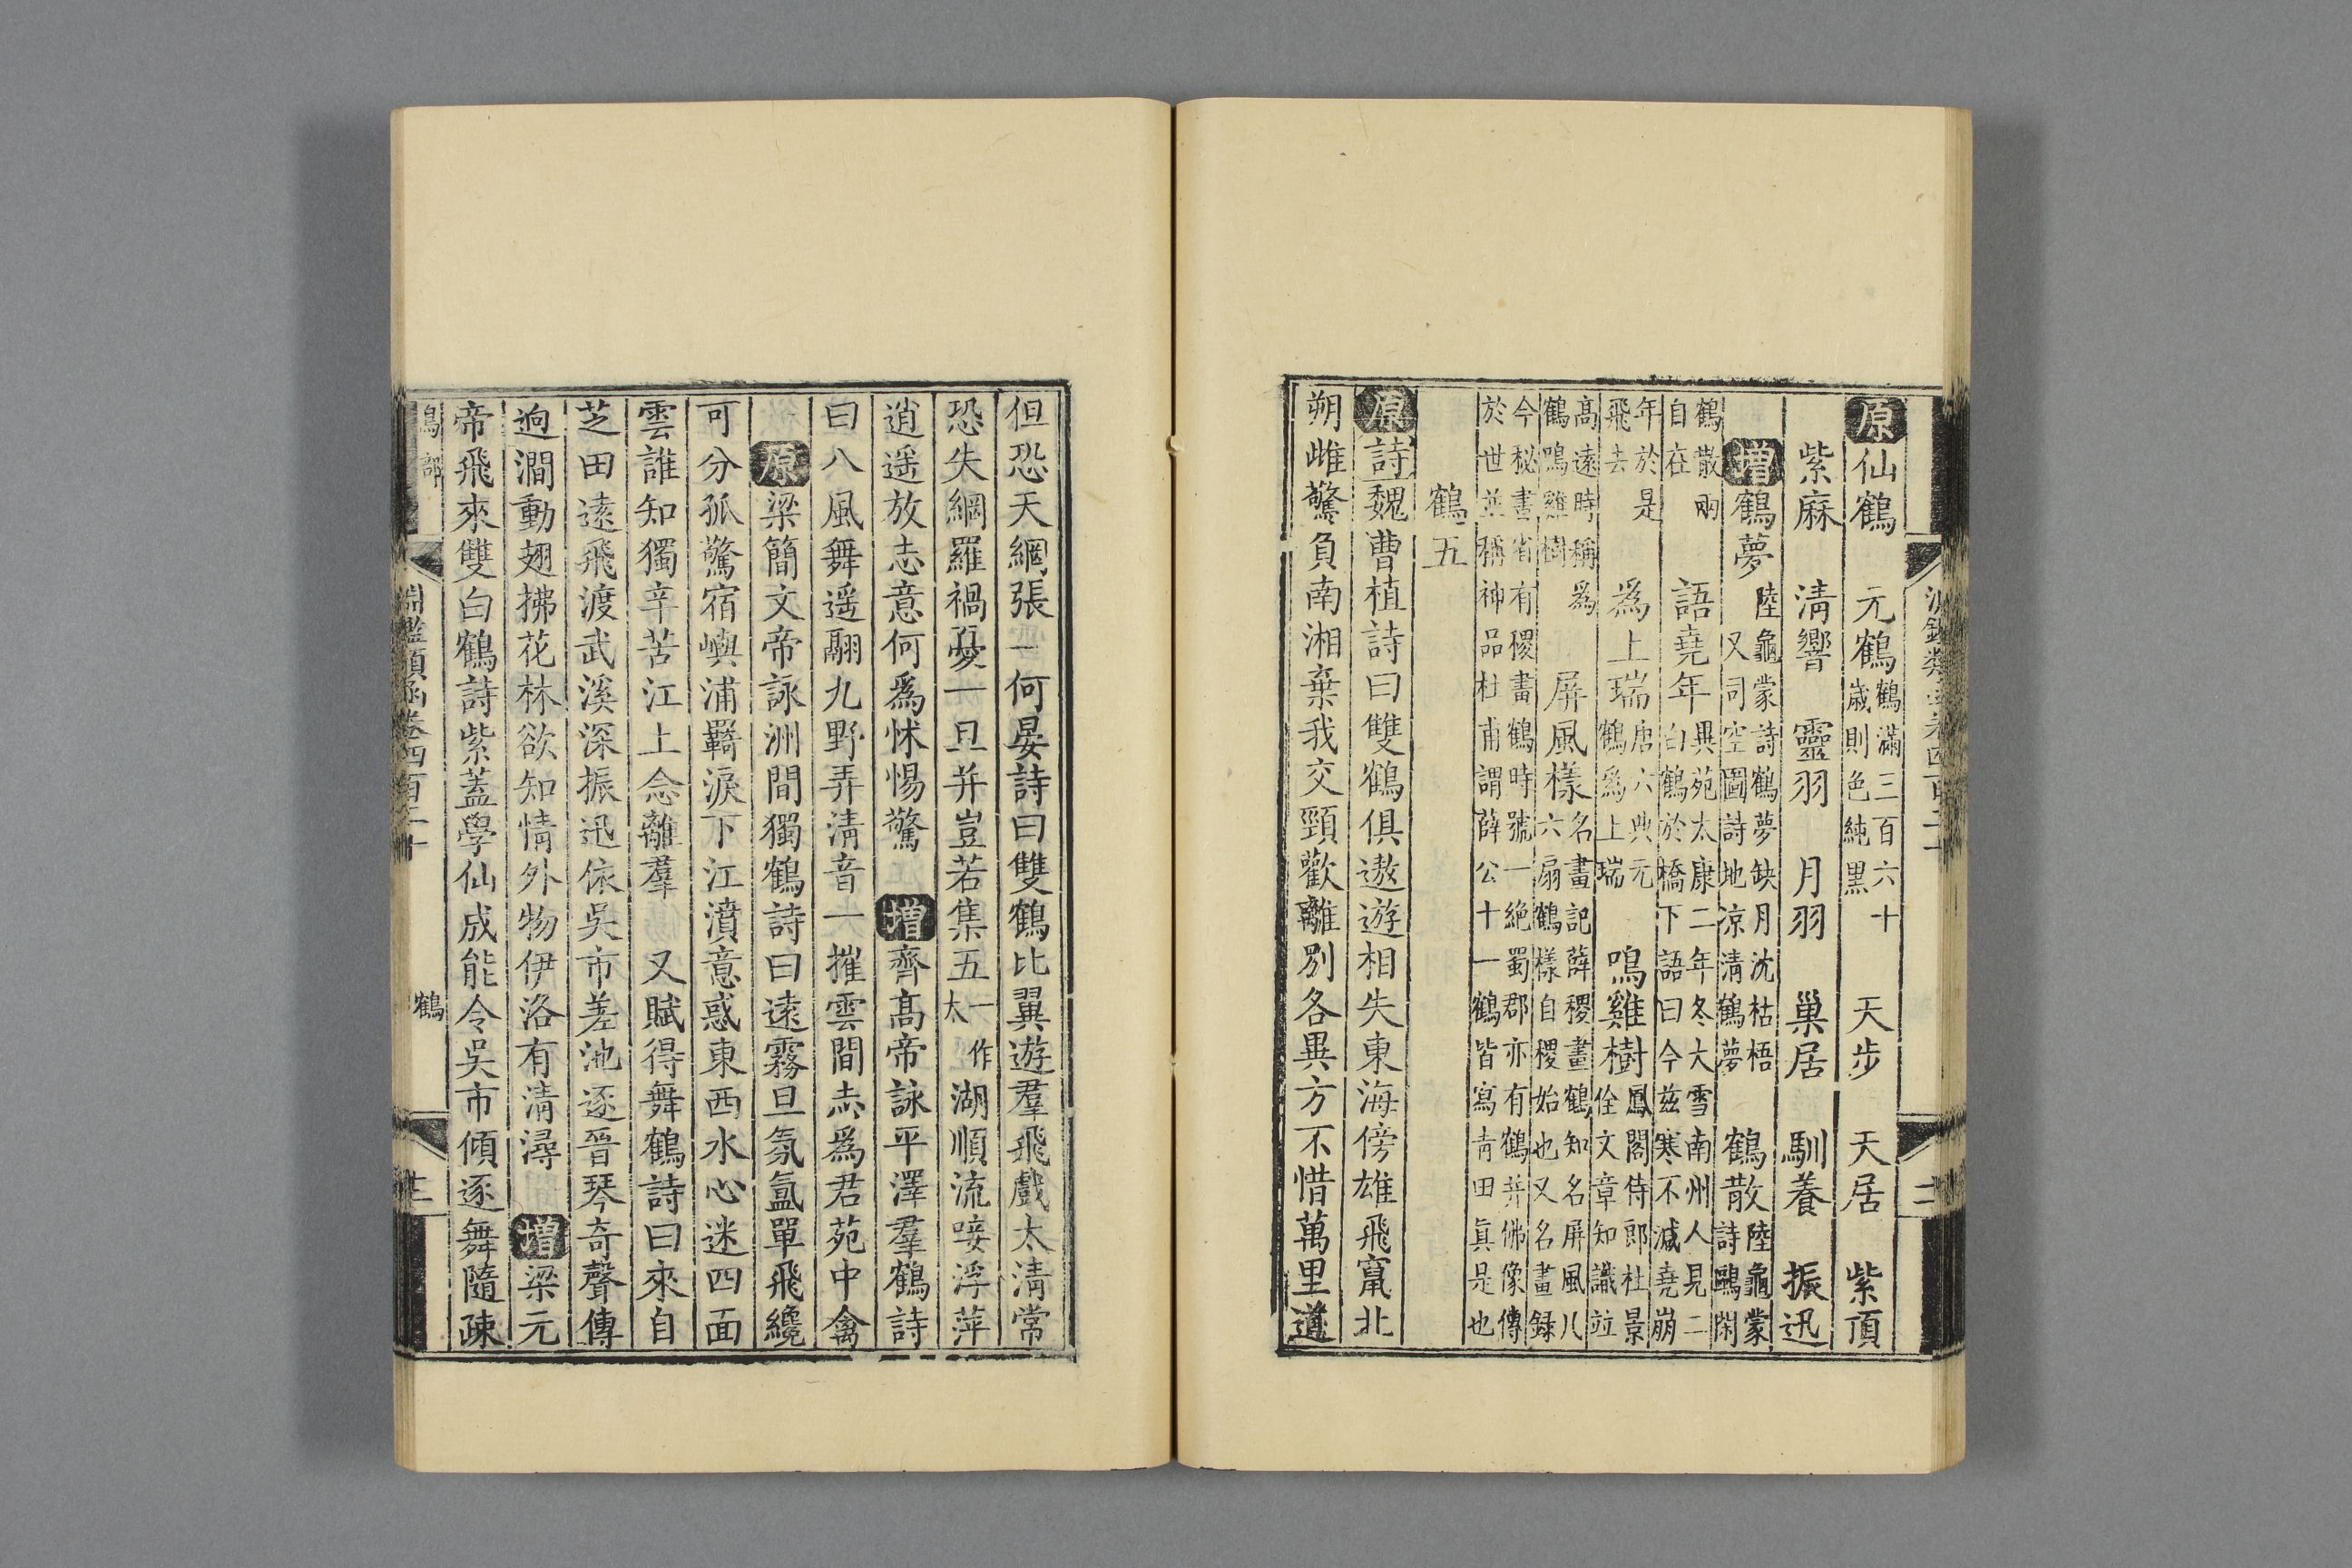 淵鑑類函卷四百二十
原仙鶴 元鶴鶴滿三百六十歲則色純黑 天步 天居 紫頂
紫麻 清響 靈羽 月羽 巢居 馴養 振迅
增鶴夢陸龜蒙詩鶴夢缺月沈枯梧又司空圖詩地凉清鶴夢 鶴散陸龜蒙詩鷗閑
鶴散兩自在 語堯年異苑太康二年冬大雪南州人見二白鶴於橋下語曰今茲寒不減堯崩
年於是飛去 為上瑞唐六典元鶴為上瑞 鳴雞樹鳳閣侍郎杜景佺文章知識竝
高遠時稱為鶴鳴雞樹 屏風樣名畫記薛稷畫鶴知名屏風八六扇鶴樣自稷始也又名畫録
今秘書省有稷畫鶴時號一絕蜀郡亦有鶴并佛像傳於世並稱神品杜甫謂薛公十一鶴皆寫青田真是也
鶴五
原詩魏曹植詩曰雙鶴俱遨遊相失東海傍雄飛竄北
朔雌驚負南湘棄我交頸歡離別各異方不惜萬里道
但恐天網張 何晏詩曰雙鶴比翼遊羣飛戲太清常
恐失網羅禍憂一旦并豈若集五一作太湖順流唼浮萍
逍遥放志意何爲怵惕驚 增齊高帝詠平澤羣鶴詩
曰八風舞遥翮九野弄清音一摧雲間志爲君苑中禽
原梁簡文帝詠洲間獨鶴詩曰遠霧旦氛氳單飛纔
可分孤驚宿嶼浦羇淚下江濆意惑東西水心迷四面
雲誰知獨辛苦江上念離羣 又賦得舞鶴詩曰來自
芝田遠飛渡武溪深振迅依吳市差池逐晉琴奇聲傳
逈澗動翅拂花林欲知情外物伊洛有清潯 增梁元
帝飛來雙白鶴詩紫蓋學仙成能令吳市傾逐舞隨疎
鳥部 淵鑑類函卷四百二十 鶴